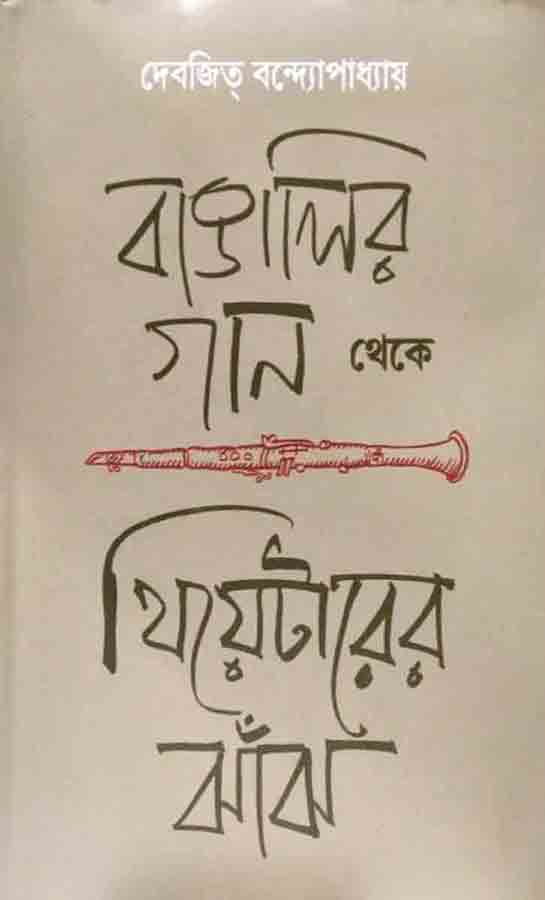 দেবজিত্ বন্দ্যোপাধ্যায়
বাঙালির
গান থেকে
থিয়েটারের
ঝাঁঝ